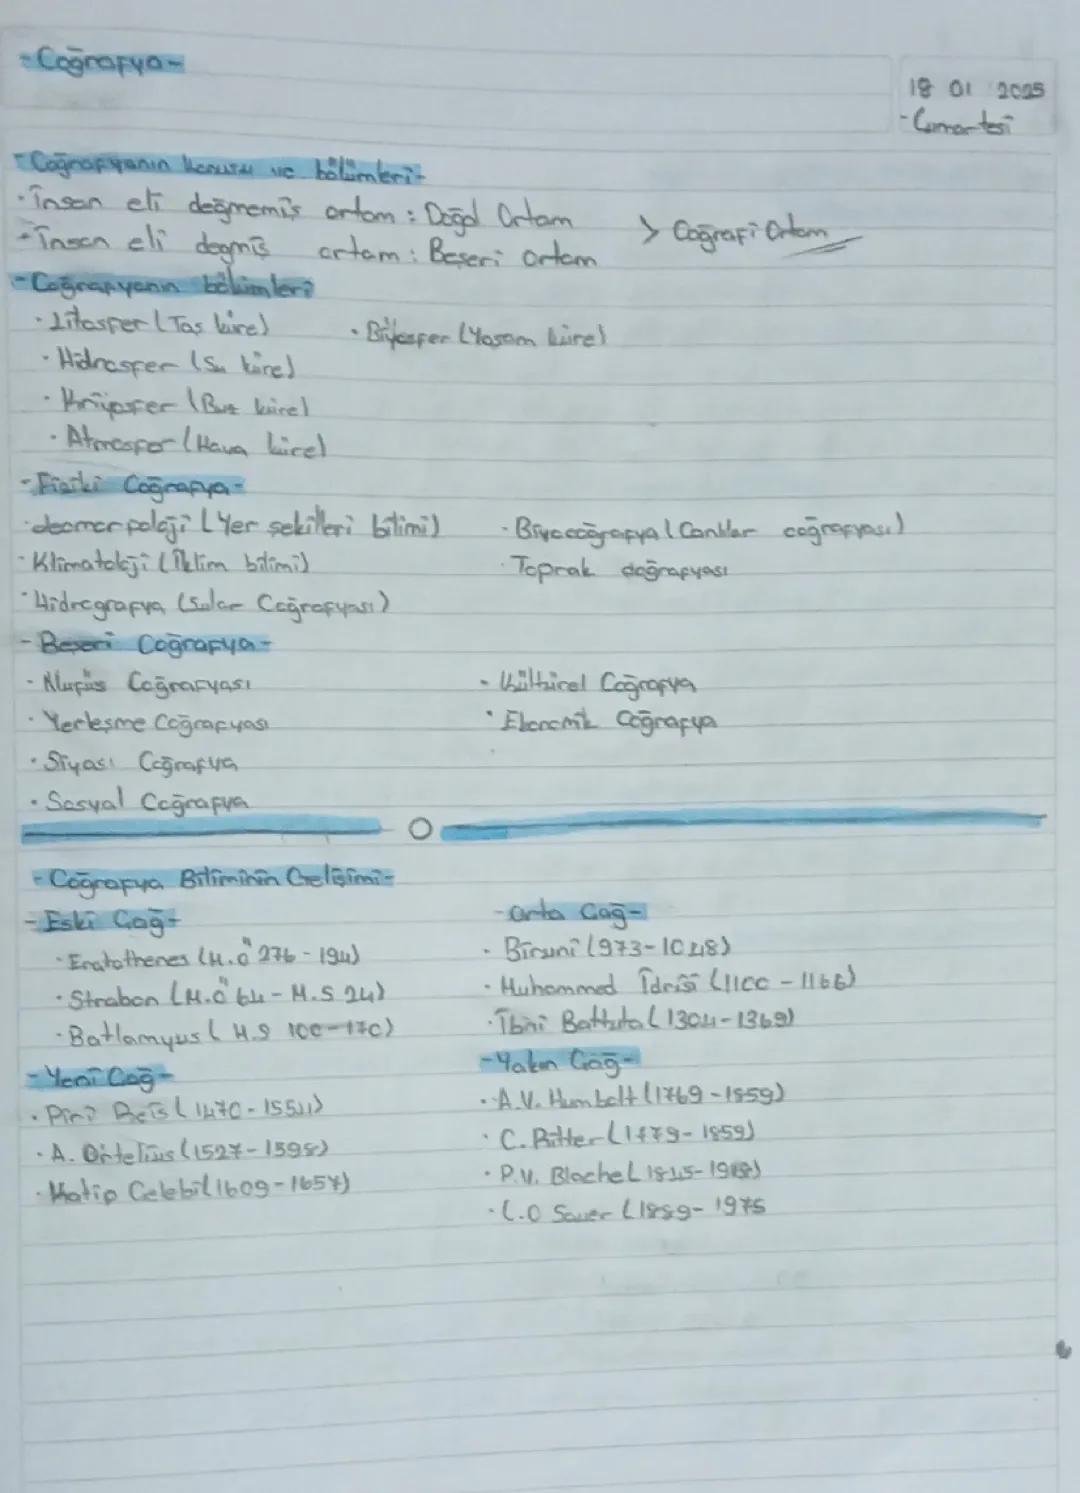 -Coğrafya-
18 01 2025
-Cumartesi
-Coğrafyanın konusu ve bölümleri-
·İnsan eli değmemiş ortam : Doğal Ortam
> Coğrafi Ortam
-İnsan eli degmiş ortam : Beşeri ortam
-Coğrafyanın bölümleri
·Litosfer (Taş küre)
·Biyosfer (Yaşam küre)
·Hidrosfer (Su küre)
·Kriyosfer (Buz küre)
·Atmosfer (Hava küre)
-Fiziki Coğrafya-
·Jeomorpoloji (Yer şekilleri bilimi)
·Biyocoğrafya (Canlılar coğrafyası)
·Klimatoloji (İklim bilimi)
·Toprak doğrafyası
·Hidrografya (Sular Coğrafyası)
-Beşeri Coğrafya-
·Nüfus Coğrafyası
·Kültürel Coğrafya
·Yerleşme Coğrafyası
·Ekonomik Coğrafya
·Siyasi Coğrafya
·Sosyal Coğrafya
-Coğrafya Biliminin Gelişimi-
-Eski Çağ-
-Orta Çağ-
·Eratothenes (M.Ö 276 - 194)
·Biruni (973-1048)
·Strabon (M.Ö 64 - M.S 24)
·Muhammed İdrisi (1100 - 1166)
·Batlamyus ( M.S 100-170)
·İbni Battuta (1304-1369)
-Yeni Çağ-
-Yakın Çağ-
·Piri Reis (1470-1554)
·A.V. Humbolt (1769-1859)
·A. Ortelius (1527-1598)
·C. Ritter (1779-1859)
·Katip Çelebi (1609-1657)
·P.V. Blache (1845-1918)
·C.O Sauer (1889-1975